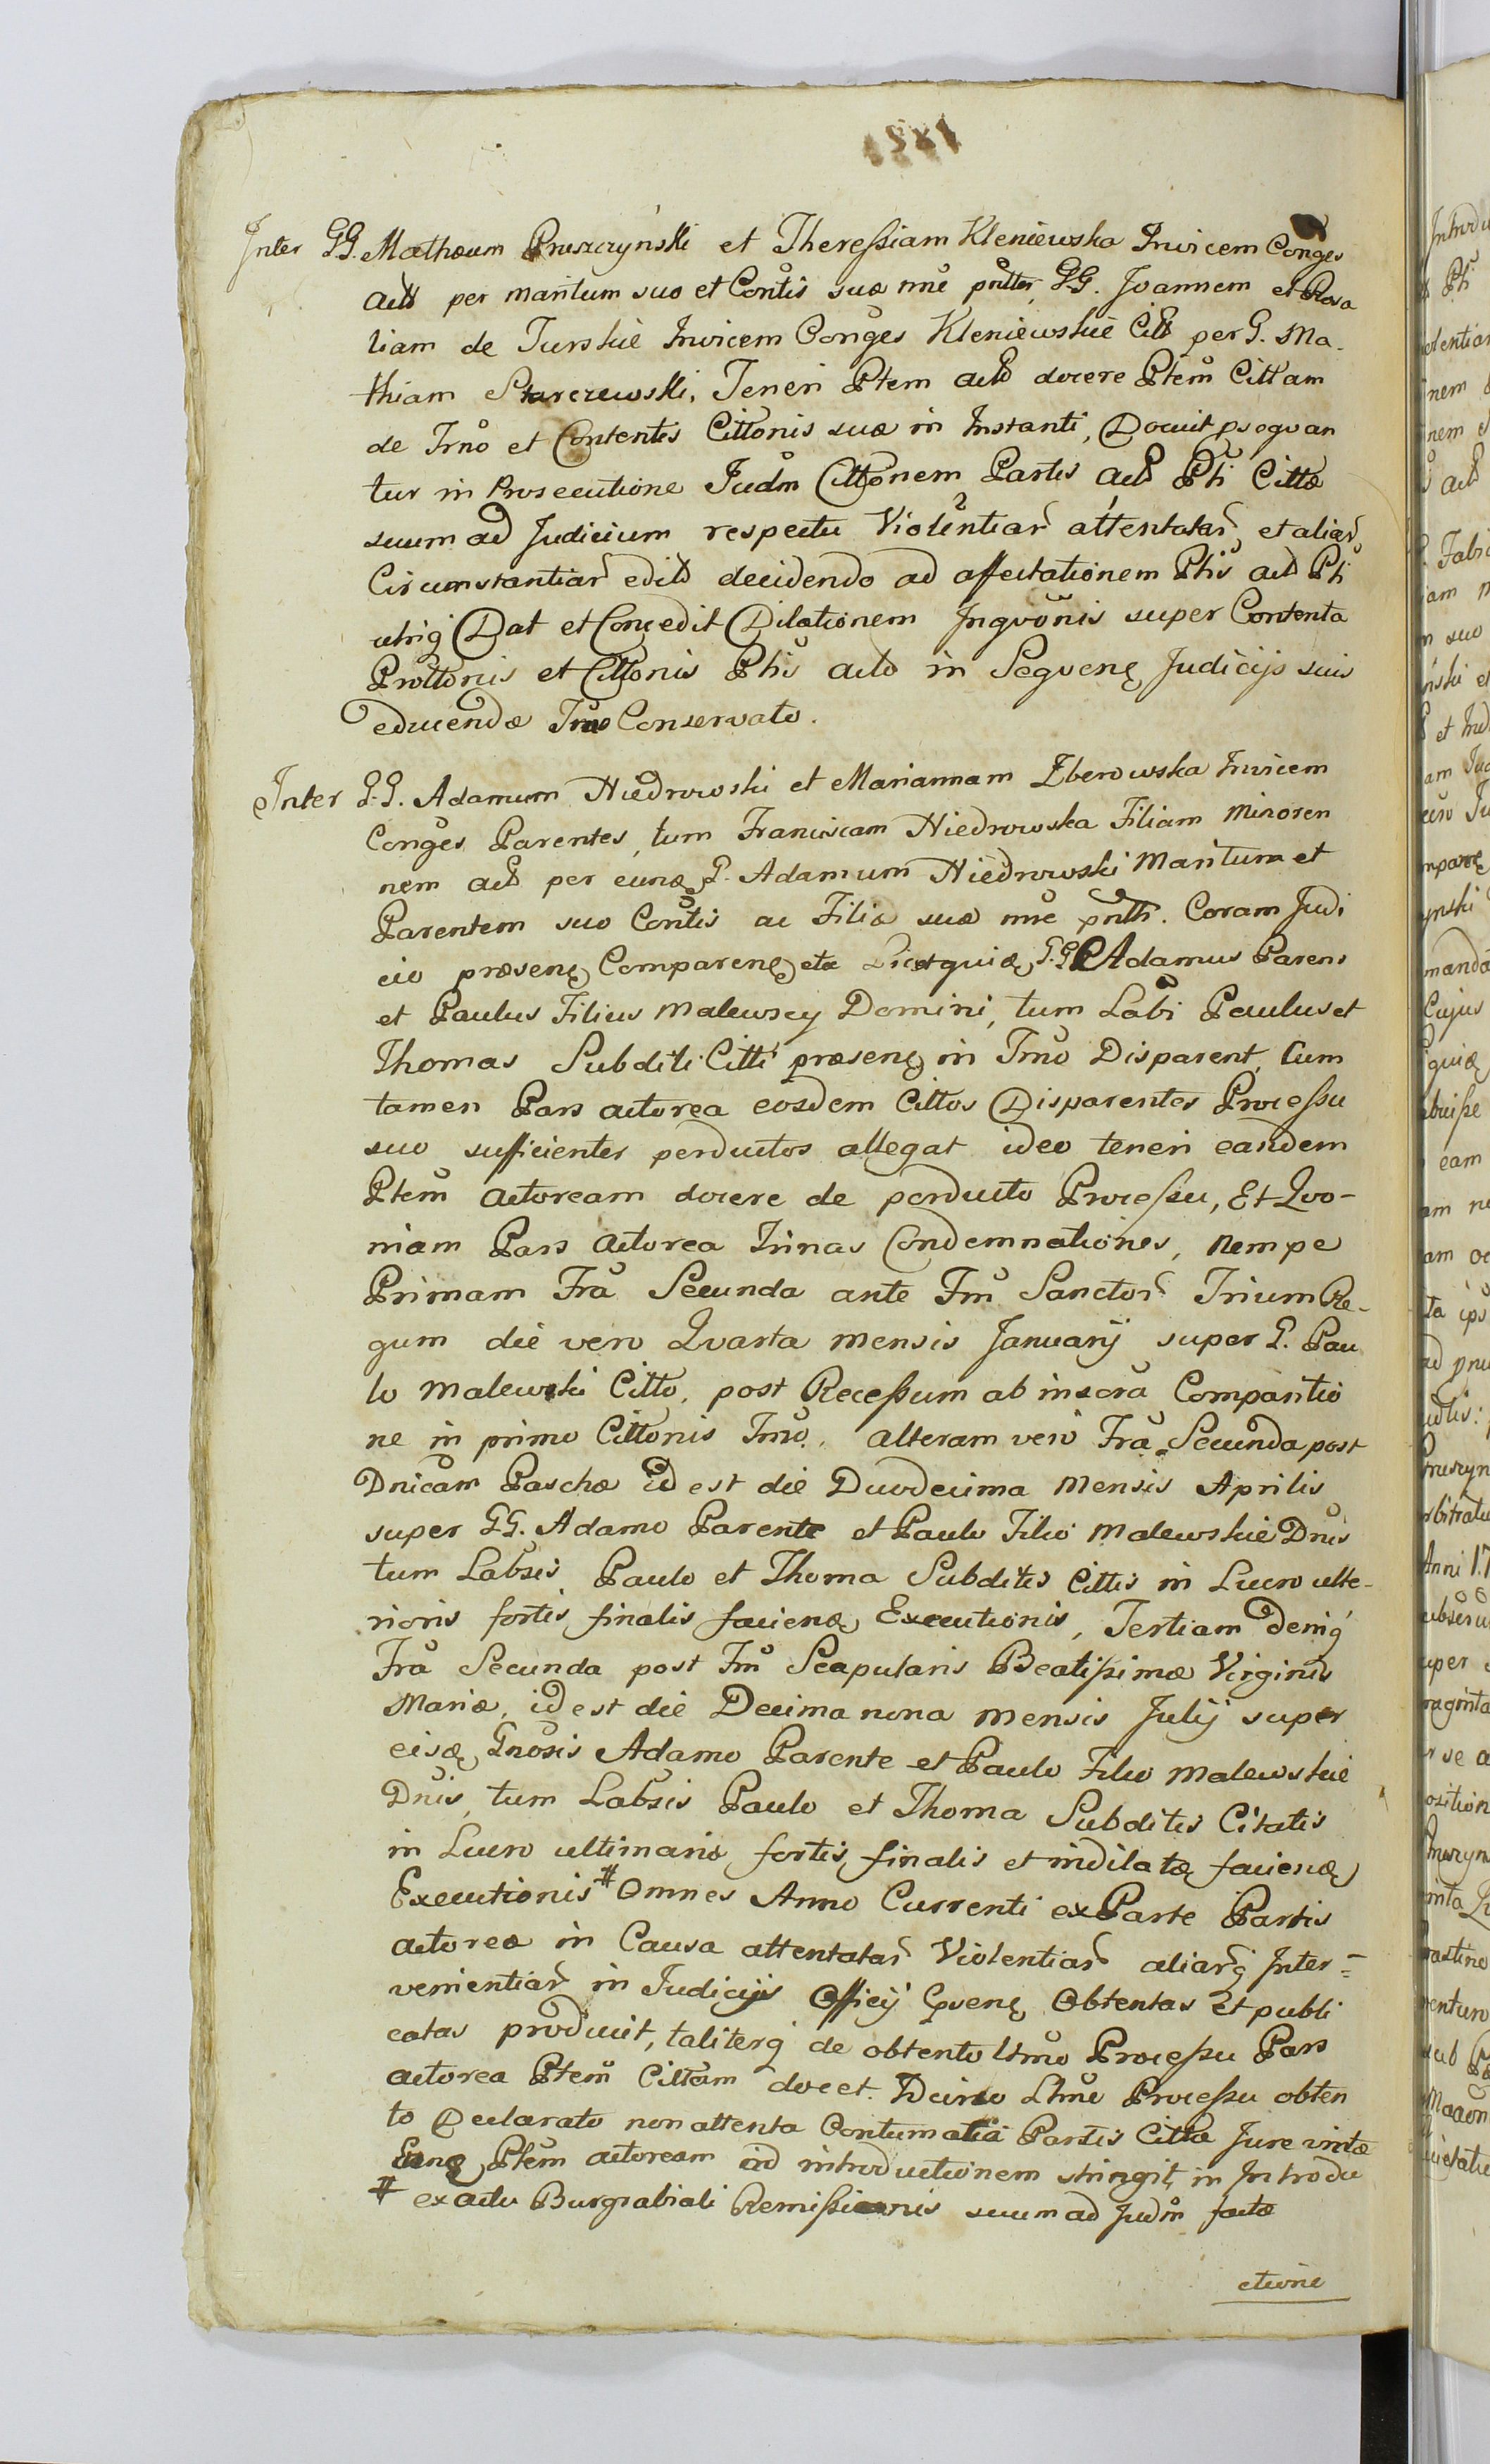 1581
Inter GG. Mathæum Pruszczyński et Theressiam Kleniewska Invicem Conges
actt per maritum suo et Contis suæ nne pntter GG. Joannem et Rosa
liam de Turskie Invicem Conges Kleniewskie Citt per G. Ma-
thiam Starczewski, Teneri Ptem actt docere Ptem Cittam
de Trno et Contentis Cittonis suæ in Instanti, Docuit pseqvan
tur in Prosecutione Judm Cittonem Partis actt Pti Cittæ
suum ad Judicium respectu Violentiar attentatar et aliar
Circumstantiar edit decidendo ad affectationem Ptis actt Pti
utriq Dat et Concedit Dilationem Inqvonis super Contenta
Prottonis et Cittonis Ptis actt in Seqvene Judicijs suis
educendæ Trno Conservato.
Inter G.G. Adamum Niedrowski et Mariannam Zberowska Invicem
Conges Parentes, tum Franciscam Niedrowska Filiam Minoren
nem actt per eund G. Adamum Niedrowski Maritum et
Parentem suo Contis ac Filiæ suæ nne pntti. Coram Judi
cio præsen Comparen eta Dicit quia G.G. Adamus Parens
et Paulus Filius Malewscy Domini, tum Labi Paulus et
Thomas Subditi Citti præsen in Trno Disparent, Cum
tamen Pars actorea eosdem Cittos Disparentes Processu
suo sufficienter perductos allegat ideo teneri eandem
Ptem actoream docere de perducto Processu, Et Qvo-
niam Pars actorea Trinas Condemnationes, nempe
Primam Fra Secunda ante Fm Sanctor Trium Re-
gum die vero Qvarta mensis Januarij super G. Pau
lo Malewski Citto, post Recessum ab inscra Comparitio
ne in primo Cittonis Trno. alteram vero Fra Secunda post
Dnicam Paschæ id est die Duodecima Mensis Aprilis
super GG. Adamo Parente et Paulo Filio Malewskie Dnis
tum Labsis Paulo et Thoma Subditis Cittis in Lucro ulte-
rioris fortis finalis faciend Executionis, Tertiam Deniq
Fra Secunda post Fm Scapularis Beatissimæ Virginis
Mariæ, id est die Decima nona mensis Julij super
eisd Gnosis Adamo Parente et Paulo Filio Malewskie
Dnis, tum Labsis Paulo et Thoma Subditis Citatis
in Lucro ultimariæ fortis finalis et indilatæ faciend
Executionis # Omnes Anno Currenti ex Parte Partis
actoreæ in Causa attentatar Violentiar aliarq Inter=
venientiar in Judicijs Officij psen Obtentas et publi
catas producit, taliterq de obtento ltmo Processu Pars
actorea Ptem Cittam docet. Deino Ltmo Processu obten
to Declarato non attenta Contumatia Partis Cittæ Jure vintæ
Eand Ptem actoream ad introductionem stringit, in Introdu
# ex actu Burgrabiali Remissionis suum ad Judm factæ
ctione